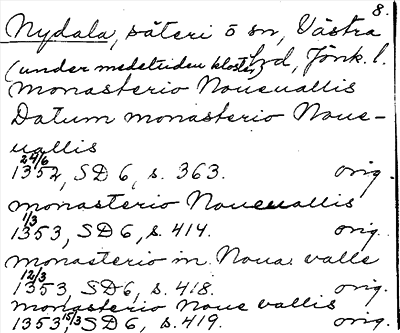 8.
Nydala, säteri o sn, Västra
(under medeltiden kloster) hd, Jönk. l.
monasterio Noueuallis
Datum monasterio Noue-
uallis
24/6
1352, SD 6, s. 363. orig.
monasterio Noueuallis
1/3
1353, SD 6, s. 414. orig.
monasterio in Noua valle
12/3
1353, SD 6, s. 418. orig.
monasterio Noue vallis
1353 15/3, SD 6, s. 419. orig.